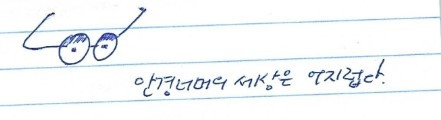 안경너머의 세상은 어지럽다.